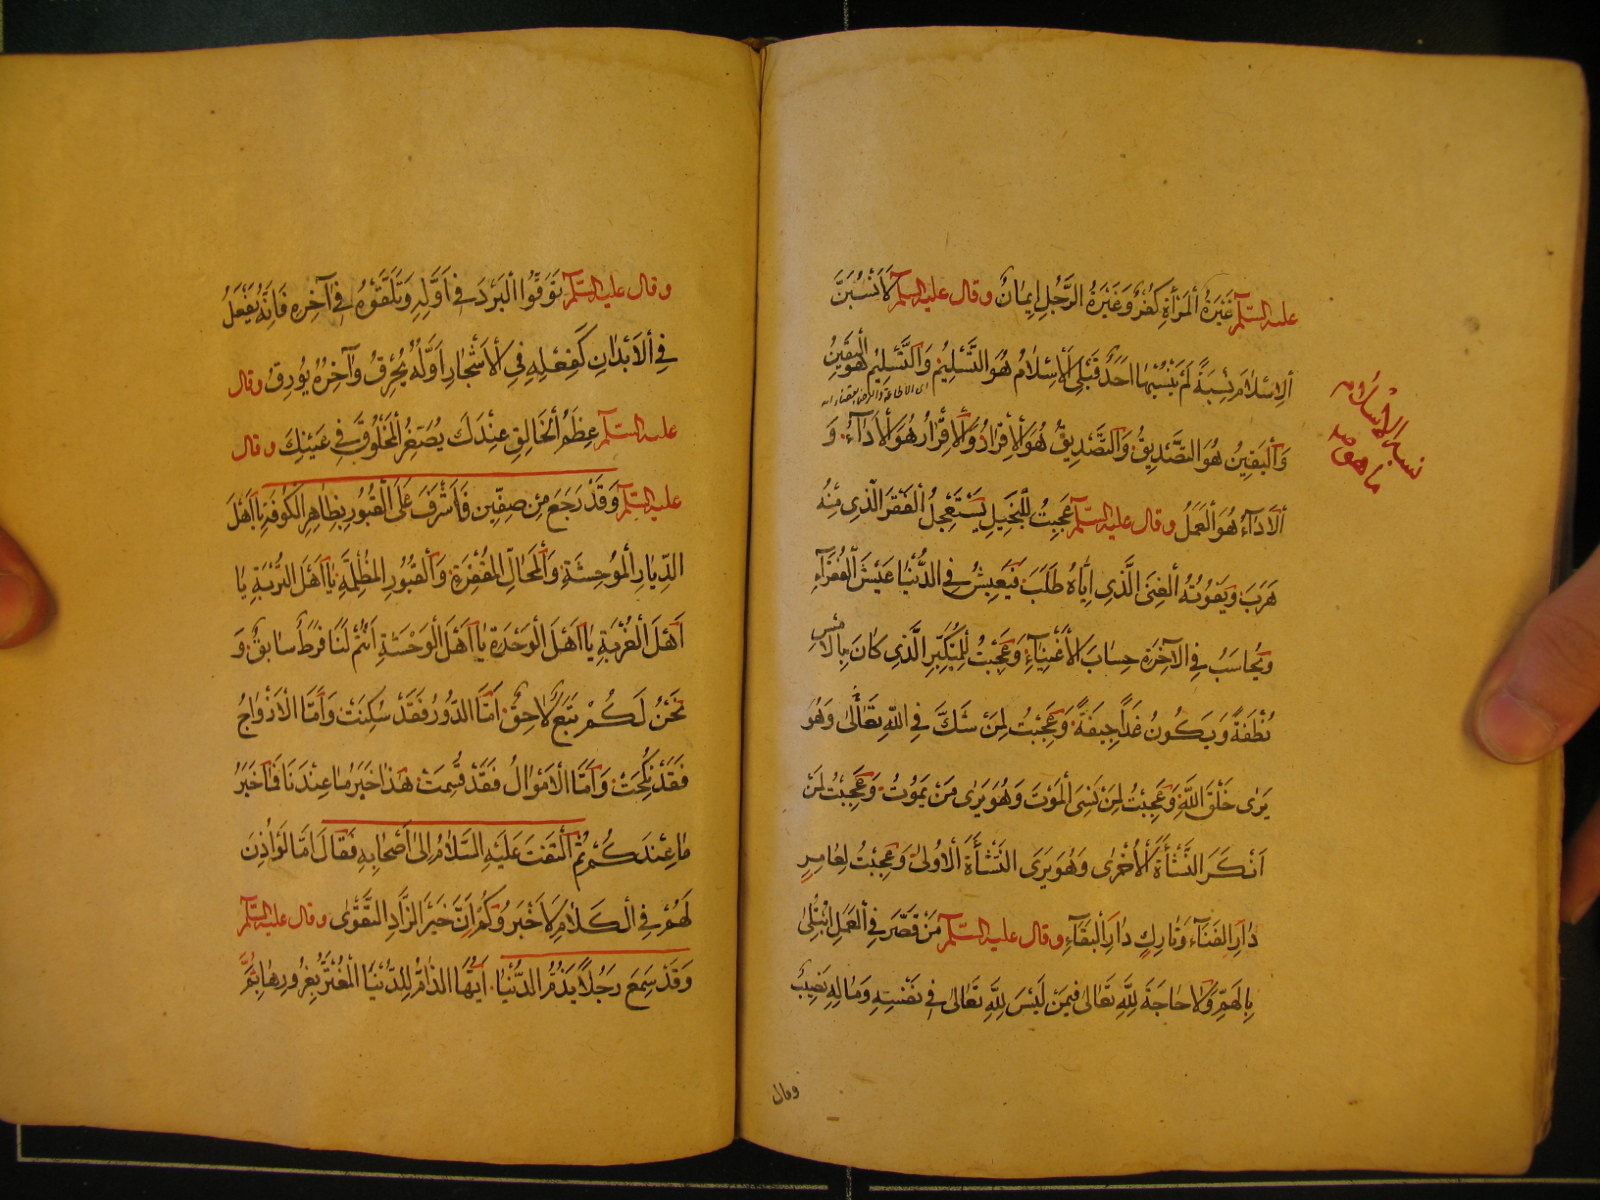 عليه السّلم غَيْرَةُ ٱلمَرْأَةِ كُفْرٌ وَغَيْرَةُ الرَّجُلِ اِيمٰانٌ وقال عليه السّلم لَاَنْسُبَنَّ
اَلاِسْلاٰمَ نِسْبَةً لَمْ يَنْسُبْهٰا اَحَدٌ قَبْلِى اَلْاِسْلاٰمُ هُوَ التَّسْلِيْمُ وَالتَّسْلِيْمُ هُوَ اليَقِيْنُ
وَاليَقِيْنُ هُوَ التَّصْدِيقُ وَالتَّصْدِيقُ هُوَ الْاِقْرَارُ وَالْاِقْرَارُ هُوَ الْاَدٰآءُ وَ
اَلْاَدٰآءُ هُوَ الْعَمَلُ وقال عليه السّلم عَجِبْتُ لِلْبَخِيْلِ يَسْتَعْجِلُ الْفَقْرَ الَّذِى مِنْهُ
هَرَبَ وَيَفُوْتُهُ الْغِنَى الَّذِى اِيّٰاهُ طَلَبَ فَيَعِيْشُ فِى الدُّنْيٰا عَيْشَ الْفُقَرٰآءِ
وَيُحٰاسَبُ فِى الْآخِرَةِ حِسٰابَ الْاَغْنِيٰآءِ وَعَجِبْتُ لِلْمُتَكَبِّرِ الَّذِى كٰانَ بِالْاَمْسِ
نُطْفَةً وَيَكُونُ غَدًا جِيفَةً وَعَجِبْتُ لِمَنْ شَكَّ فِى اللّٰهِ تَعَالٰى وَهُوَ
يَرٰى خَلْقَ اللّٰهِ وَعَجِبْتُ لِمَنْ نَسِىَ الْمَوْتَ وَهُوَ يَرٰى مَنْ يَمُوْتُ وَعَجِبْتُ لِمَنْ
اَنْكَرَ النَّشْأَةَ الْاُخْرٰى وَهُوَ يَرَى النَّشْأَةَ الْاُولىٰ وَعَجِبْتُ لِعٰامِرِ
دٰارِ الْفَنٰآءِ وَتٰارِكِ دٰارِ الْبَقٰآءِ وقال عليه السّلم مَنْ قَصَّرَ فِى الْعَمَلِ ابْتُلِىَ
بِالْهَمِّ وَلاٰ حٰاجَةَ لِلّٰهِ تَعٰالىٰ فِيمَنْ لَيْسَ لِلّٰهِ تَعٰالىٰ فِى نَفْسِهِ وَمٰالِهِ نَصِيْبٌ
وقال
نسبة الاسلام
ما هو
وقال عليه السّلم تَوَقَّوُا الْبَرْدَ فِى اَوَّلِهِ وَتَلَقَّوْهُ فِى آخِرِهِ فَاِنَّهُ يَفْعَلُ
فِى الْاَبْدٰانِ كَفِعْلِهِ فِى الْاَشْجٰارِ اَوَّلُهُ يُحْرِقُ وَآخِرُهُ يُورِقُ وقال
عليه السّلم عِظَمُ الْخَالِقِ عِنْدَكَ يُصَغِّرُ الْمَخْلُوْقَ فِى عَيْنِكَ وقال
عليه السّلم وَقَدْ رَجَعَ مِنْ صِفِّيْنَ فَاَشْرَفَ عَلَى الْقُبُورِ بِظٰاهِرِ الْكُوفَةِ يٰا اَهْلَ
الدِّيٰارِ الْمُوحِشَةِ وَالْمَحَالِّ الْمُقْفِرَةِ وَالْقُبُورِ الْمُظْلِمَةِ يٰا اَهْلَ التُّرْبَةِ يٰا
اَهْلَ الْغُرْبَةِ يٰا اَهْلَ الْوَحْدَةِ يٰا اَهْلَ الْوَحْشَةِ اَنْتُمْ لَنٰا فَرَطٌ سٰابِقٌ وَ
نَحْنُ لَكُمْ تَبَعٌ لاٰحِقٌ اَمَّا الدُّوْرُ فَقَدْ سُكِنَتْ وَاَمَّا الْاَزْوٰاجُ
فَقَدْ نُكِحَتْ وَاَمَّا الْاَمْوٰالُ فَقَدْ قُسِمَتْ هٰذٰا خَبَرُ مٰا عِنْدَنَا فَمٰا خَبَرُ
مٰا عِنْدَكُمْ ثُمَّ الْتَفَتَ عَلَيْهِ السَّلاٰمُ اِلىٰ اَصْحٰابِهِ فَقٰالَ اَمٰا لَوْ اُذِنَ
لَهُمْ فِى الْكَلاٰمِ لَاَخْبَرُوْكُمْ اِنَّ خَيْرَ الزّٰادِ التَّقْوٰى وقال عليه السّلم
وَقَدْ سَمِعَ رَجُلًا يَذُمُّ الدُّنْيٰا اَيُّهَا الذّٰامُّ لِلدُّنْيَا الْمُغْتَرُّ بِغُرُورِهٰا بِمَ